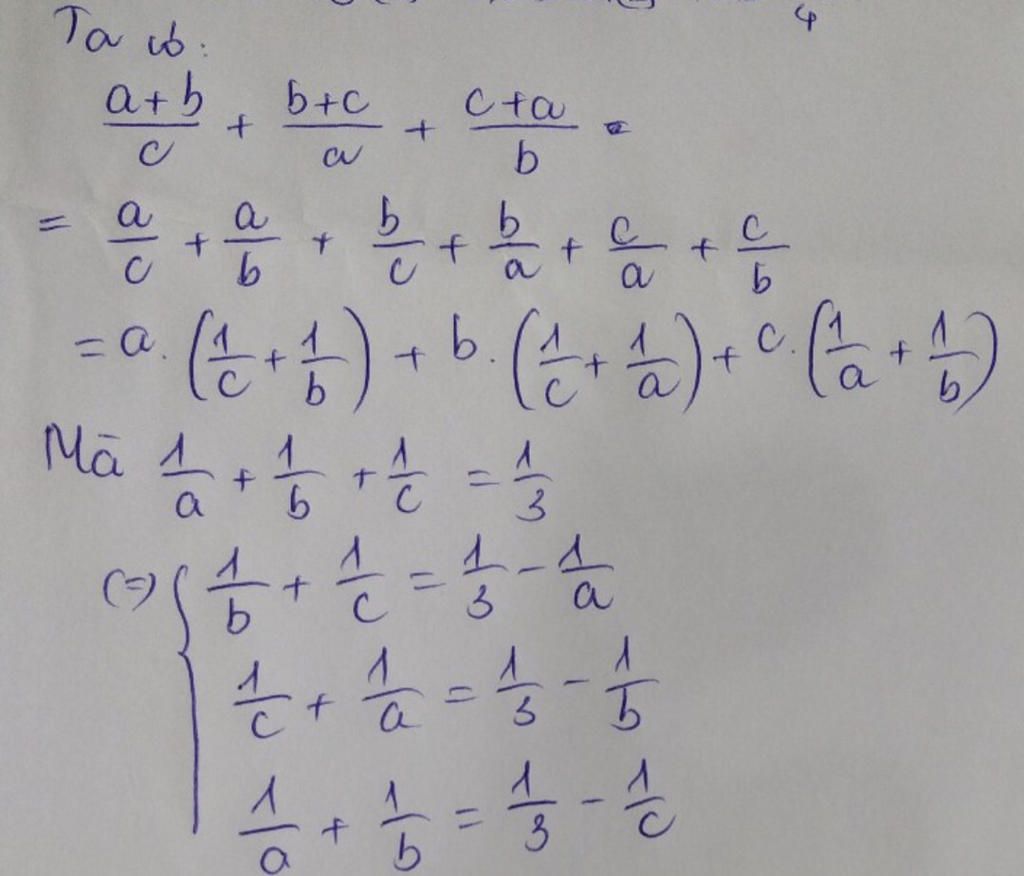 4
Ta có:
\frac{a+b}{c} + \frac{b+c}{a} + \frac{c+a}{b} =
= \frac{a}{c} + \frac{a}{b} + \frac{b}{c} + \frac{b}{a} + \frac{c}{a} + \frac{c}{b}
= a. (\frac{1}{c} + \frac{1}{b}) + b. (\frac{1}{c} + \frac{1}{a}) + c. (\frac{1}{a} + \frac{1}{b})
Mà \frac{1}{a} + \frac{1}{b} + \frac{1}{c} = \frac{1}{3}
(=) { \frac{1}{b} + \frac{1}{c} = \frac{1}{3} - \frac{1}{a}
\frac{1}{c} + \frac{1}{a} = \frac{1}{3} - \frac{1}{b}
\frac{1}{a} + \frac{1}{b} = \frac{1}{3} - \frac{1}{c}